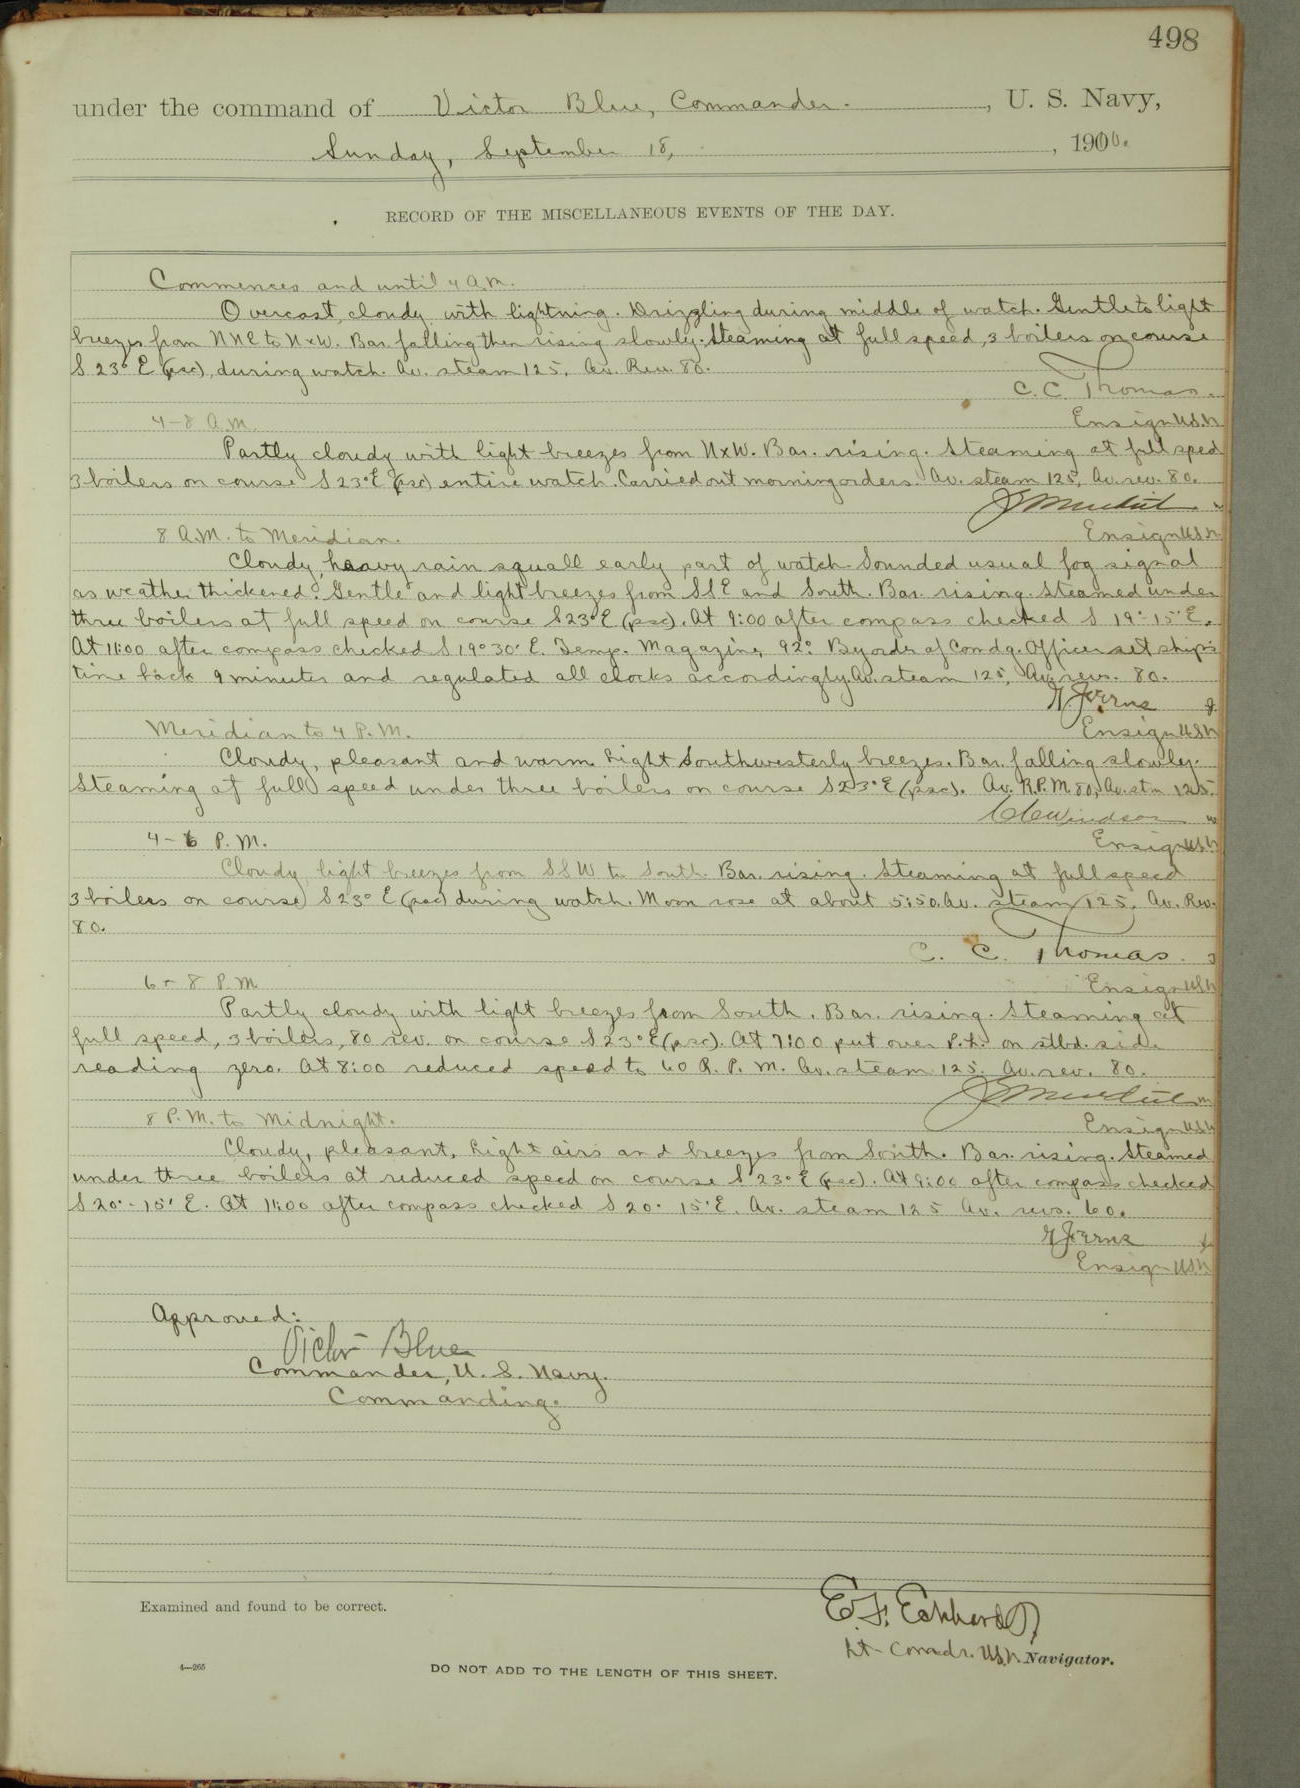 498
under the command of Victor Blue, Commander. , U. S. Navy,
Sunday, September 18, , 1910.
RECORD OF THE MISCELLANEOUS EVENTS OF THE DAY.
Commences and until 4 A.M.
Overcast, cloudy with lightning. Drizzling during middle of watch. Gentle to light
breezes from NNE to NxW. Bar. falling then rising slowly. Steaming at full speed, 3 boilers on course
S 23° E (psc), during watch. Av. steam 125. Av. Rev. 80.
C. C. Thomas.
4-8 A.M. Ensign U.S.N.
Partly cloudy with light breezes from NxW. Bar. rising. Steaming at full speed
3 boilers on course S 23° E (psc) entire watch. Carried out morning orders. Av. steam 125, Av. rev. 80.
8 A.M. to Meridian. Ensign U.S.N.
Cloudy, heavy rain squall early part of watch. Sounded usual fog signal
as weather thickened. Gentle and light breezes from SSE and South. Bar. rising. Steamed under
three boilers at full speed on course S 23° E (psc). At 9:00 after compass checked S 19°-15' E.
At 11:00 after compass checked S 19° 30' E. Temp. Magazine, 92°. By order of Comdg. Officer set ship's
time back 9 minutes and regulated all clocks accordingly. Av. steam 125, Av. revs. 80.
Meridian to 4 P.M. Ensign U.S.N.
Cloudy, pleasant and warm. Light Southwesterly breezes. Bar. falling slowly.
Steaming at full speed under three boilers on course S 23° E (psc). Av. R.P.M. 80, Av. stm 125.
Windsor
4-6 P.M. Ensign U.S.N.
Cloudy, light breezes from SSW to South. Bar. rising. Steaming at full speed
3 boilers on course S 23° E (psc) during watch. Moon rose at about 5:50. Av. steam 125. Av. Rev.
80.
C. C. Thomas.
6-8 P.M. Ensign U.S.N.
Partly cloudy with light breezes from South. Bar. rising. Steaming at
full speed, 3 boilers, 80 rev. on course S 23° E (psc). At 7:00 put over P.L. on stbd. side
reading zero. At 8:00 reduced speed to 60 R. P. M. Av. steam 125. Av. rev. 80.
8 P.M. to Midnight. Ensign U.S.N.
Cloudy, pleasant, Light airs and breezes from South. Bar. rising. Steamed
under three boilers at reduced speed on course S 23° E (psc). At 9:00 after compass checked
S 20°-15' E. At 11:00 after compass checked S 20° 15' E. Av. steam 125 Av. revs. 60.
Ensign U.S.N.
Approved:
Victor Blue
Commander, U. S. Navy.
Commanding.
Examined and found to be correct.
Lt- Comdr. U.S.N. Navigator.
4—265
DO NOT ADD TO THE LENGTH OF THIS SHEET.